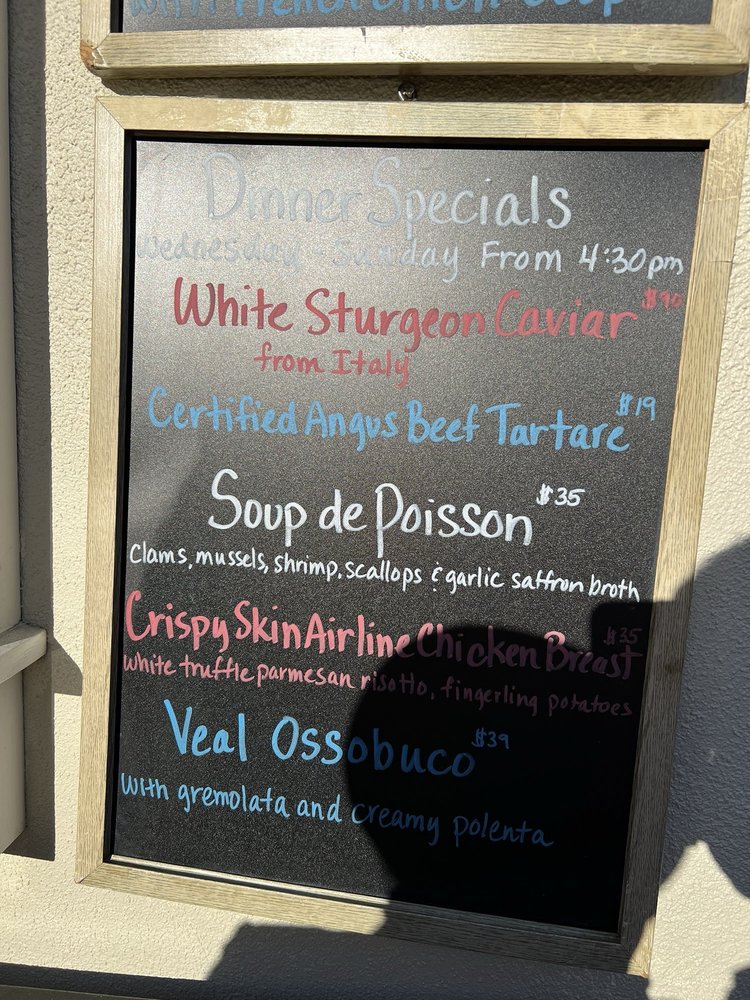 with French Onion Soup
Dinner Specials
Wednesday - Sunday From 4:30pm
White Sturgeon Caviar $90
from Italy
Certified Angus Beef Tartare $19
Soup de Poisson $35
Clams, mussels, shrimp, scallops & garlic saffron broth
Crispy Skin Airline Chicken Breast $35
white truffle parmesan risotto, fingerling potatoes
Veal Ossobuco $39
with gremolata and creamy polenta